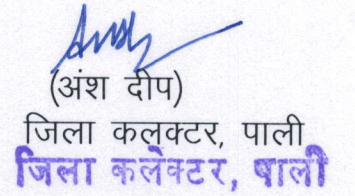 (अंश दीप)
जिला कलक्टर, पाली
जिला कलेक्टर, पाली